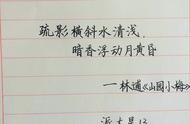 疏影横斜水清浅，
暗香浮动月黄昏
—林逋《山园小梅》